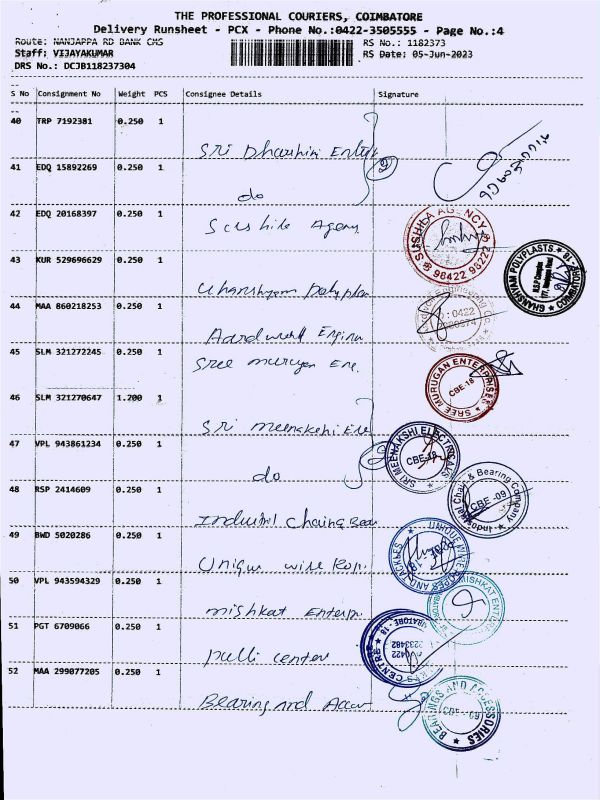 THE PROFESSIONAL COURIERS, COIMBATORE
Delivery Runsheet - PCX - Phone No.:0422-3505555 - Page No.:4
Route: NANJAPPA RD BANK CMS RS No.: 1182373
Staff: VIJAYAKUMAR RS Date: 05-Jun-2023
DRS No.: DCJB118237304
S No Consignment No Weight PCS Consignee Details Signature
40 TRP 7192381 0.250 1
Sri
41 EDQ 15892269 0.250 1
do
42 EDQ 20168397 0.250 1
Agency
SUSHILA AGENCY
98422 98222
43 KUR 529696629 0.250 1
GHANSHYAM POLYPLASTS
COIMBATORE - 18
44 MAA 860218253 0.250 1
: 0422
45 SLM 321272245 0.250 1
Sree murugan Ene.
SREE MURUGAN ENTERPRISES
CBE-18
46 SLM 321270647 1.200 1
Sri meenakshi Ele
47 VPL 943861234 0.250 1
do
SRI MEENAKSHI ELECTRICALS
CBE-18
48 RSP 2414609 0.250 1
Industrial Chain & Bearing Company
CBE -09
49 BWD 5020286 0.250 1
Unique wire Rop.
UNIQUE WIRE ROPES AND TACKLES
50 VPL 943594329 0.250 1
mishkat Enterp.
MISHKAT ENTER
51 PGT 6709066 0.250 1
pulli center
CENTRE
0422
2233482
52 MAA 299077205 0.250 1
Bearing and Acce
BEARINGS AND ACCESSORIES
CBE - 09